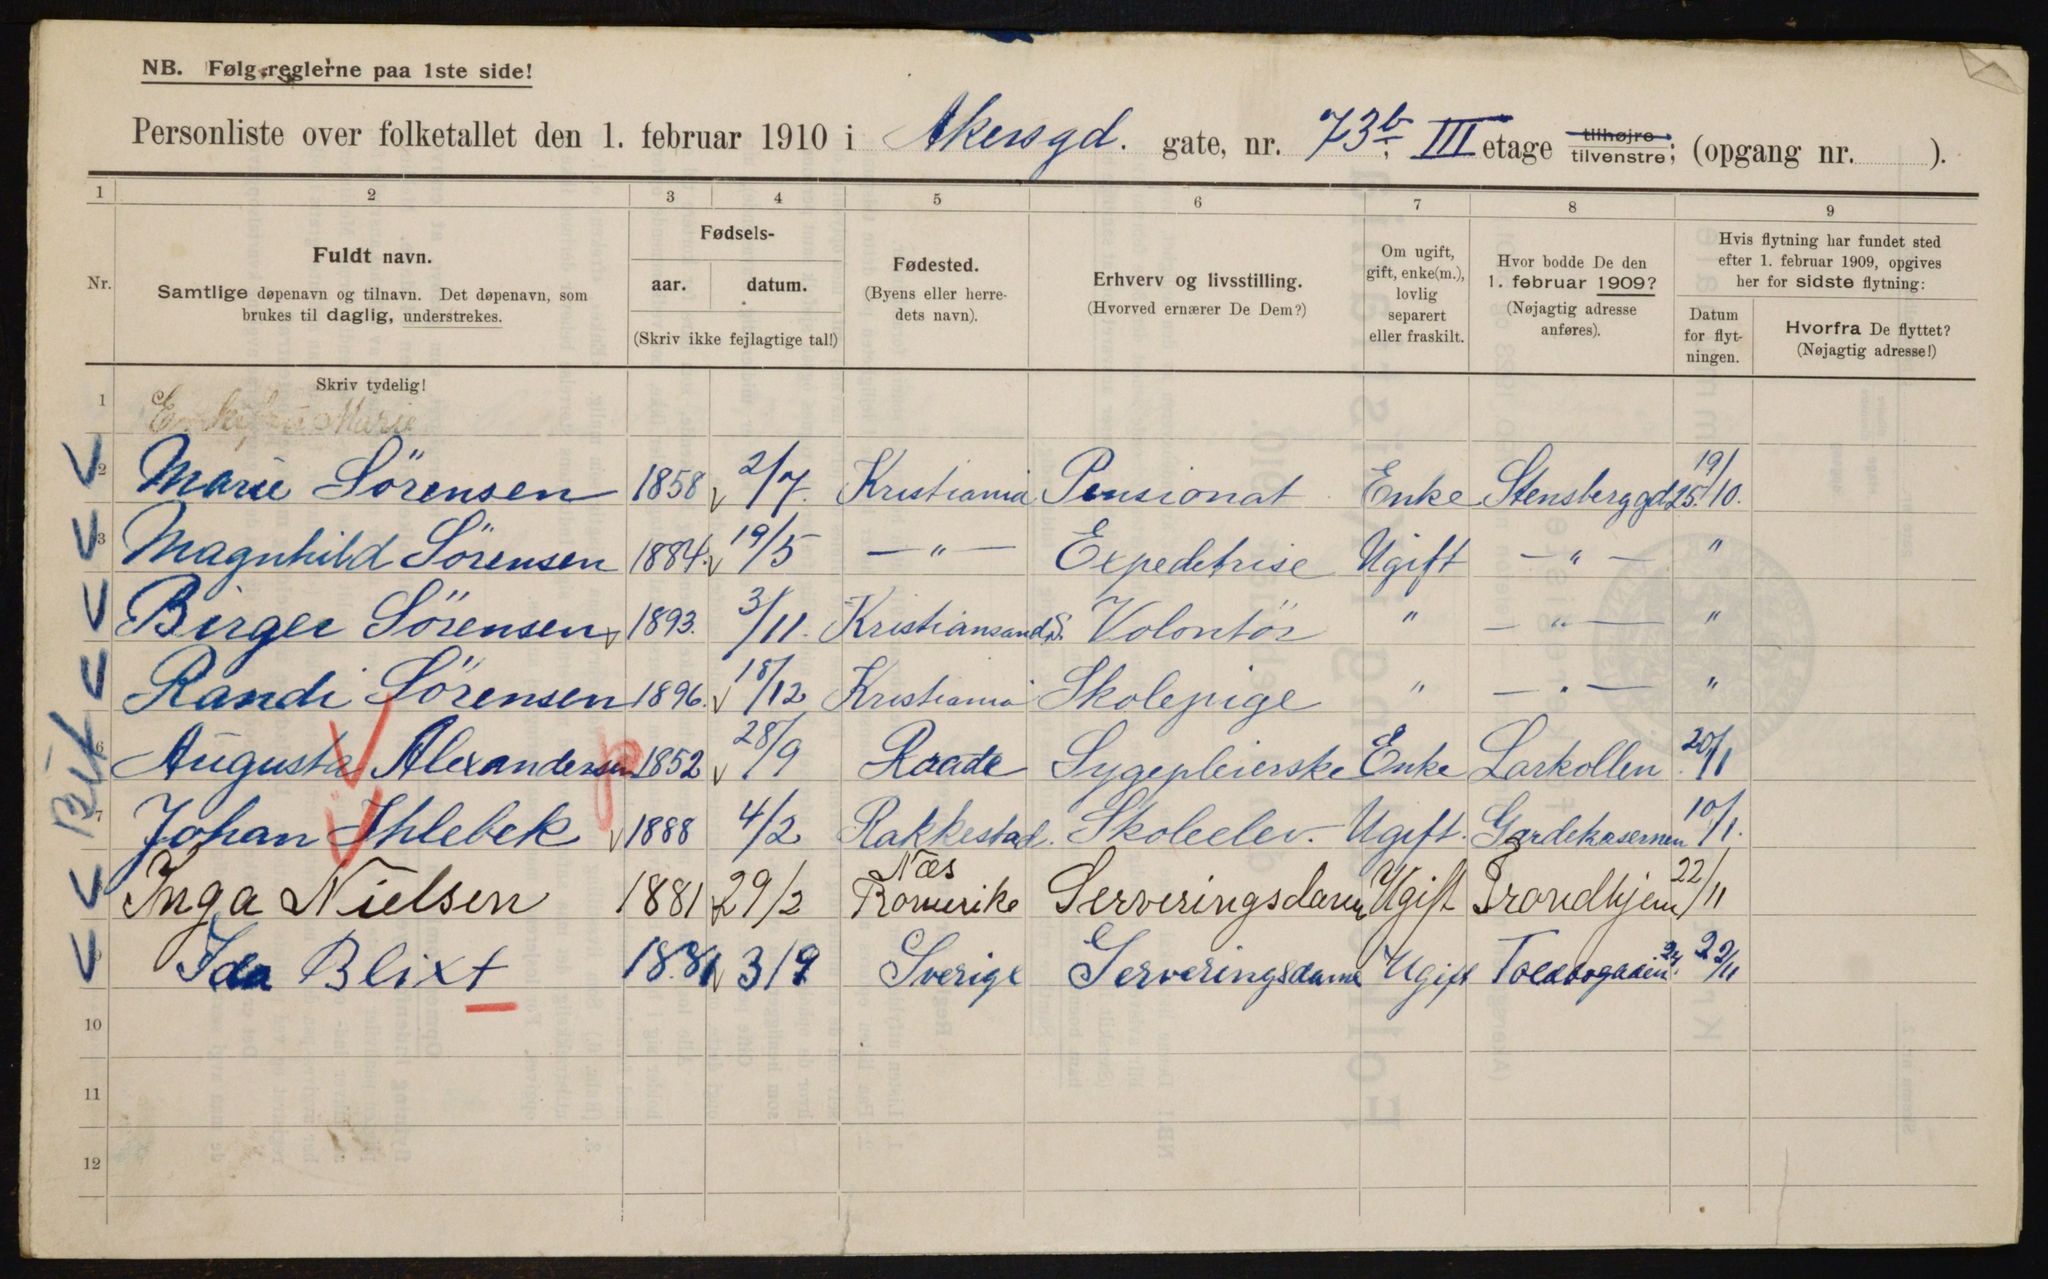 NB. Følg reglerne paa 1ste side!
Personliste over folketallet den 1. februar 1910 i Akersgd. gate, nr. 73b. III etage tilhøjre tilvenstre; (opgang nr. ).
1 2 3 4 5 6 7 8 9
Nr.
Fuldt navn.
Samtlige døpenavn og tilnavn. Det døpenavn, som
brukes til daglig, understrekes.
Fødsels-
aar. datum.
(Skriv ikke fejlagtige tal!)
Fødested.
(Byens eller herre-
dets navn).
Erhverv og livsstilling.
(Hvorved ernærer De Dem?)
Om ugift,
gift, enke(m.),
lovlig
separert
eller fraskilt.
Hvor bodde De den
1. februar 1909?
(Nøjagtig adresse
anføres).
Hvis flytning har fundet sted
efter 1. februar 1909, opgives
her for sidste flytning:
Datum
for flyt-
ningen.
Hvorfra De flyttet?
(Nøjagtig adresse!)
Skriv tydelig!
1 Enkefru Marie
2 Marie Sörensen 1858 2/7. Kristiania Pensionat Enke Stensberggd 25. 19/10.
3 Magnhild Sörensen 1884. 19/5 — " — Expeditrise Ugift — " — "
Birger Sörensen 1893. 3/11. Kristiansand S. Volontör " — " — "
Randi Sörensen 1896. 18/12 Kristiania Skolepige " — " — "
6 Augusta Alexandersen 1852 28/9 Raade Sygepleierske Enke Larkollen 20/1
7 Johan Ihlebek 1888 4/2 Rakkestad. Skoleelev. Ugift. Gardekasernen 10/1.
Inga Nielsen 1881 29/2 Næs Romerike Serveringsdame Ugift Trondhjem 22/11
9 Ida Blixt 1881 3/9 Sverige Serveringsdame Ugift Toldbogaden 24. 22/11
10
11
12